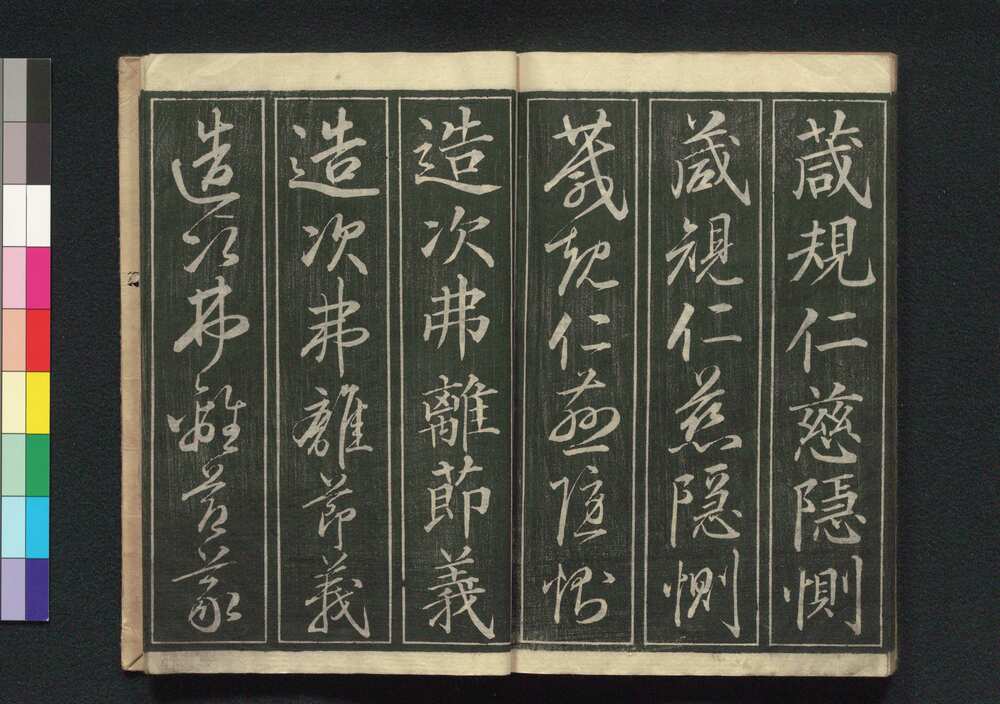 葴規仁慈隱惻
葴規仁慈隱惻
葴規仁慈隱惻
造次弗離節義
造次弗離節義
造次弗離節義